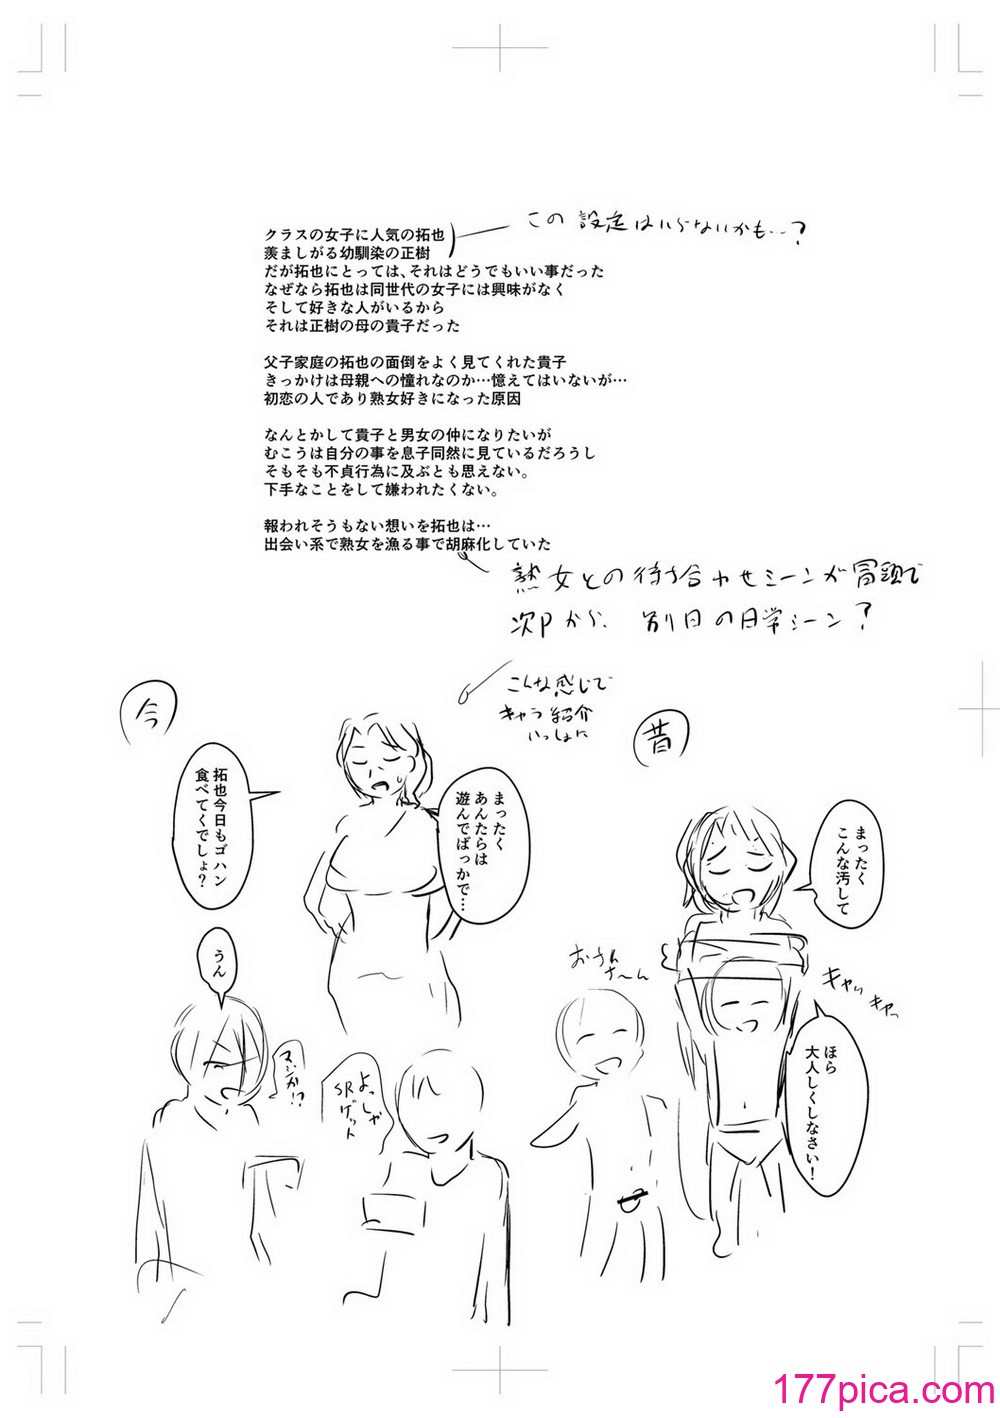 クラスの女子に人気の拓也
羨ましがる幼馴染の正樹
だが拓也にとっては、それはどうでもいい事だった
なぜなら拓也は同世代の女子には興味がなく
そして好きな人がいるから
それは正樹の母の貴子だった
この設定はいらないかも…?
父子家庭の拓也の面倒をよく見てくれた貴子
きっかけは母親への憧れなのか…憶えてはいないが…
初恋の人であり熟女好きになった原因
なんとかして貴子と男女の仲になりたいが
むこうは自分の事を息子同然に見ているだろうし
そもそも不貞行為に及ぶとも思えない。
下手なことをして嫌われたくない。
報われそうもない想いを拓也は…
出会い系で熟女を漁る事で胡麻化していた
熟女との待ち合わせシーンが冒頭で
次Pから、別日の日常シーン?
こんな感じで
キャラ紹介
いっしょに
昔
まったく
こんな汚して
キャッ
キャッ
ほら
大人しくしなさい!
おかあ
さ〜ん
今
まったく
あんたらは
遊んでばっかで…
拓也今日もゴハン
食べてくでしょ?
うん
よっしゃ
SR
ゲット
マジか!?
177pica.com